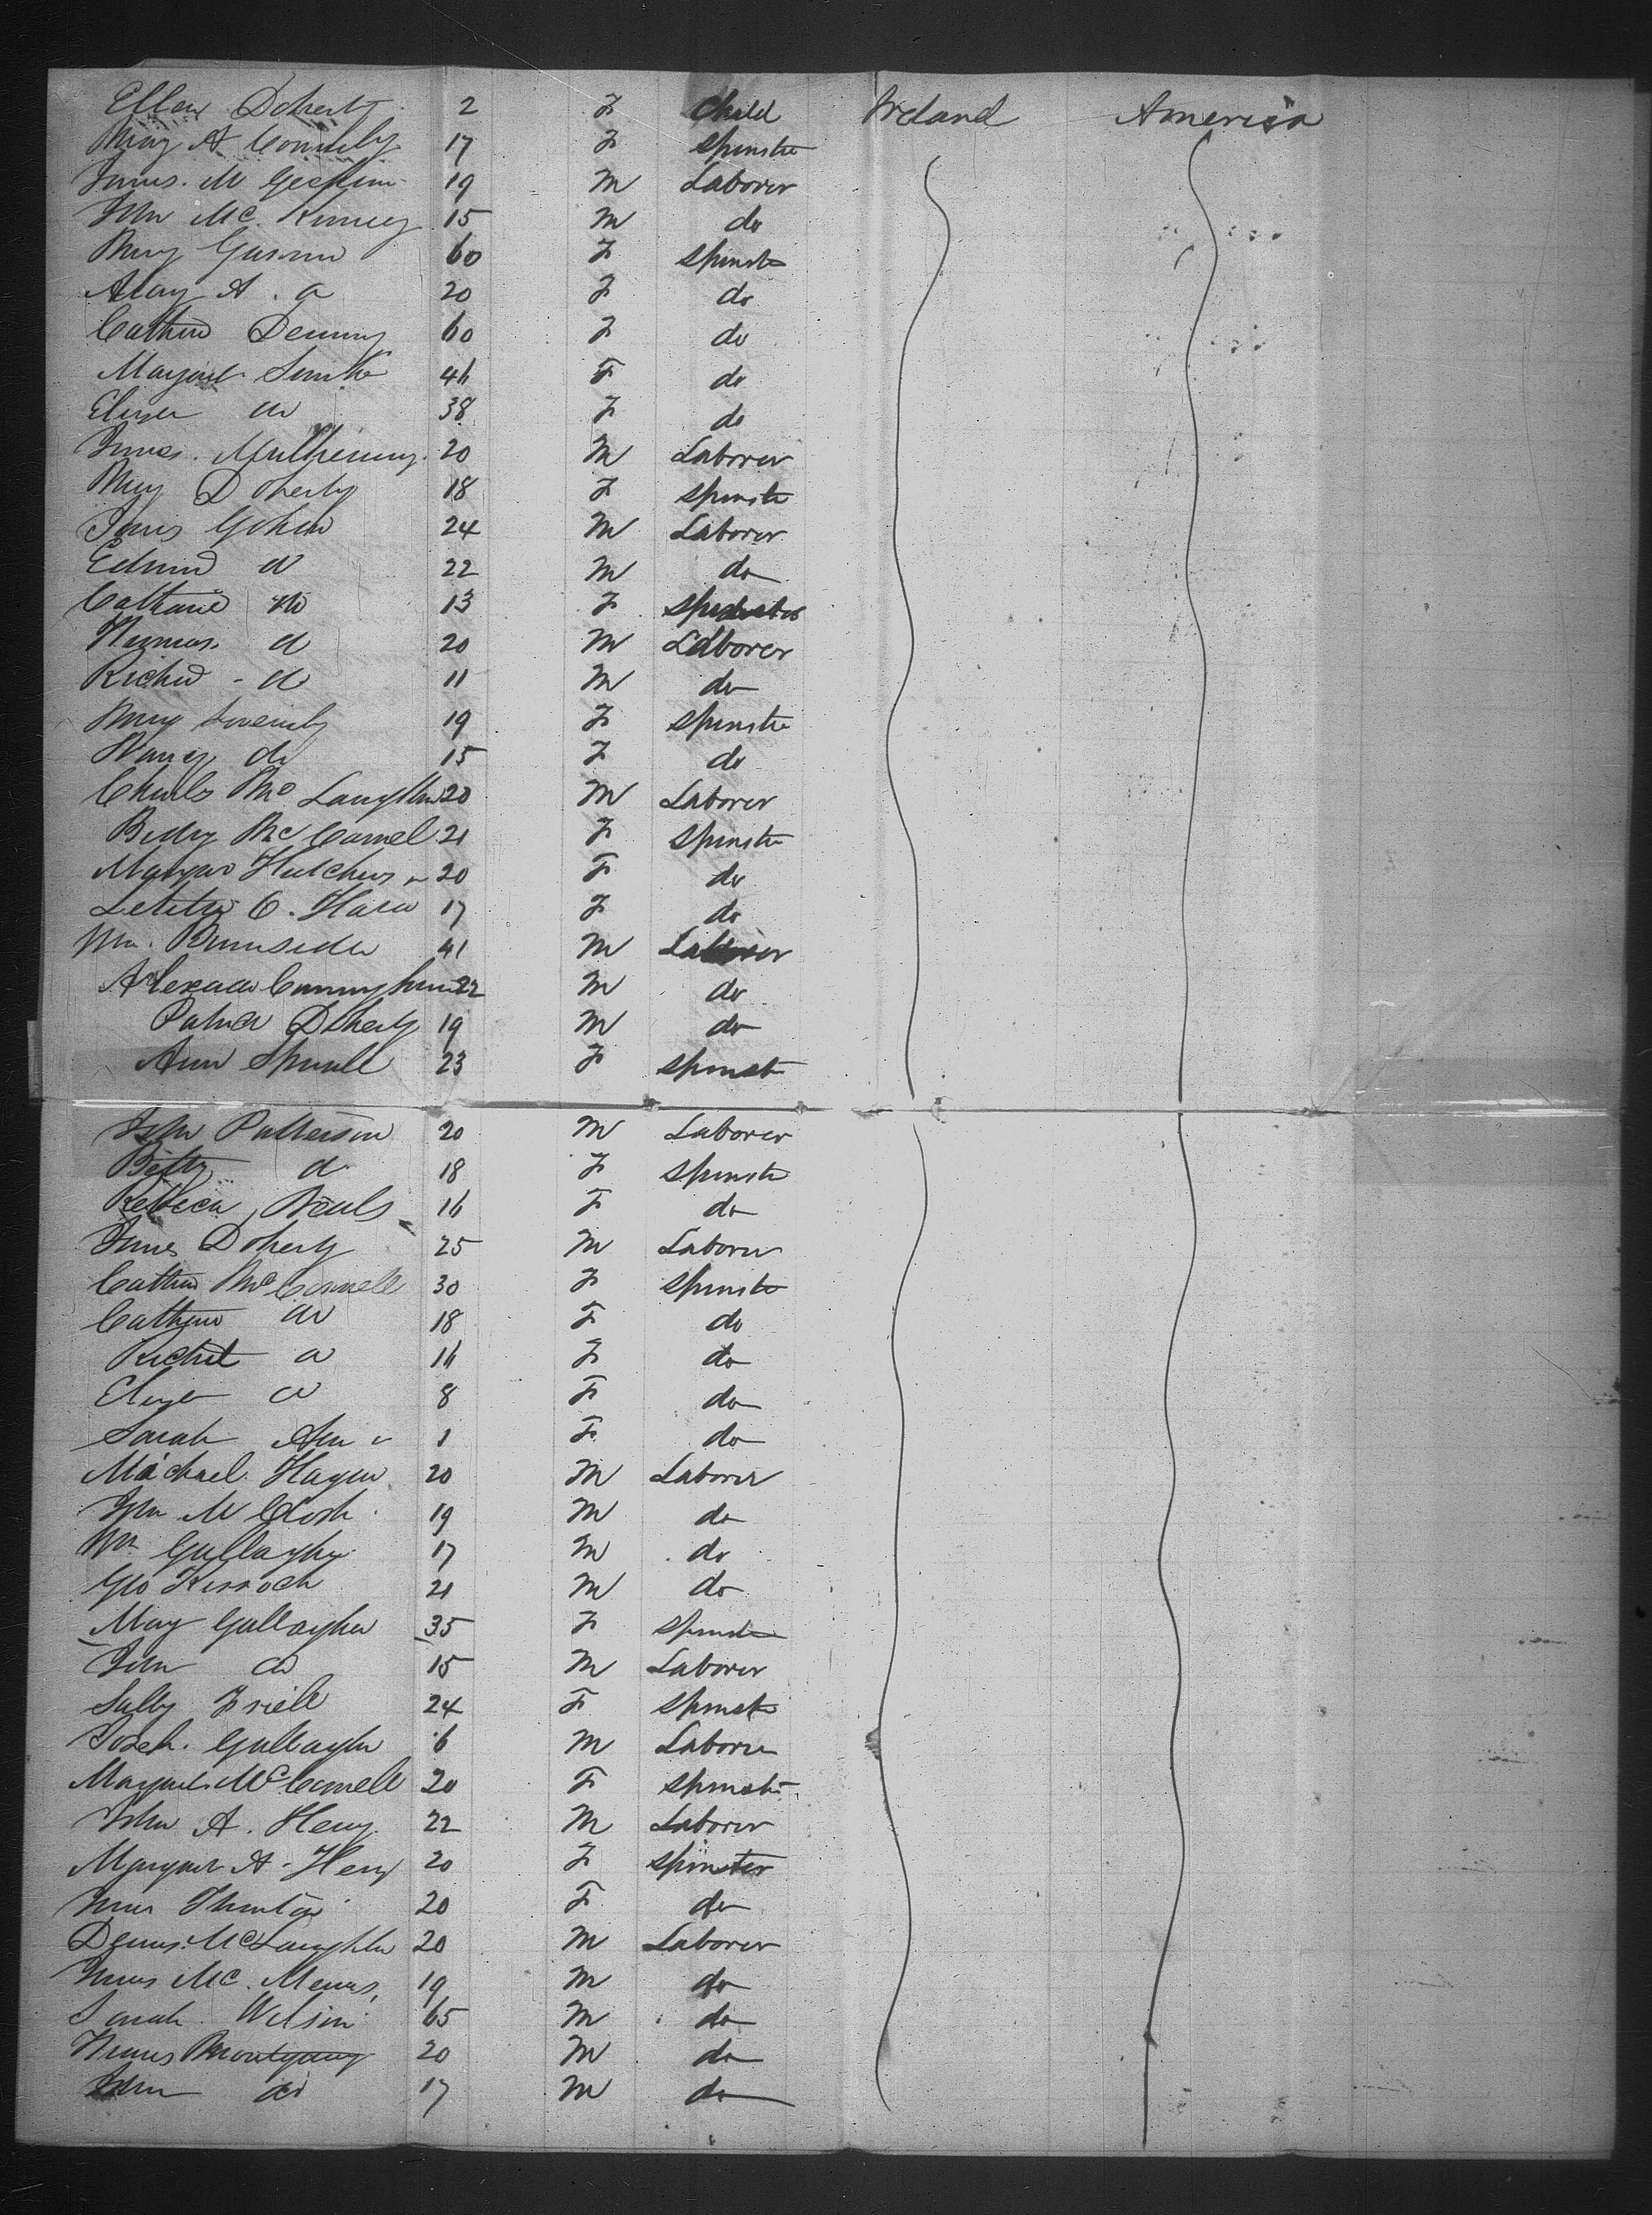 Ellen Doherty 2 F Child Ireland America
Mary A Connelly 17 F Spinster
James M 19 M Laborer
John Mc Kinney 15 M do
Mary 60 F Spinster
Mary A. do 20 F do
Catherine Denning 60 F do
Margaret Smith 46 F do
Eliza do 38 F do
James 20 M Laborer
Mary Doherty 18 F Spinster
James 24 M Laborer
Edmund do 22 M do
Catharine do 13 F Spinster
Thomas do 20 M Laborer
Richard - do 11 M do
Mary 19 F Spinster
Nancy do 15 F do
Charles Mc Laughlin 20 M Laborer
Bidey Mc Connel 21 F Spinster
Margaret Hutchinson 20 F do
Letitia O. Hara 17 F do
Wm. Burnside 41 M Laborer
Alexander Cunningham 22 M do
Patrick Doherty 19 M do
Ann 23 F Spinster
John Patterson 20 M Laborer
Betty do 18 F Spinster
Rebecca 16 F do
James Doherty 25 M Laborer
Catherine McConnell 30 F Spinster
Catherine do 18 F do
Rachel do 16 F do
Eliza do 8 F do
Sarah Ann do 1 F do
Michael Hagan 20 M Laborer
John M 19 M do
Wm Gallagher 17 M do
Geo 21 M do
Mary Gallagher 35 F Spinster
John do 15 M Laborer
Sally Friell 24 F Spinster
Joseh. Gallagher 6 M Laborer
Margaret McConnell 20 F Spinster
John A. Henry 22 M Laborer
Margaret A. Henry 20 F Spinster
20 F do
Dennis McLaughlin 20 M Laborer
James Mc. 19 M do
Sarah Wilson 65 M do
Montgomery 20 M do
John do 17 M do